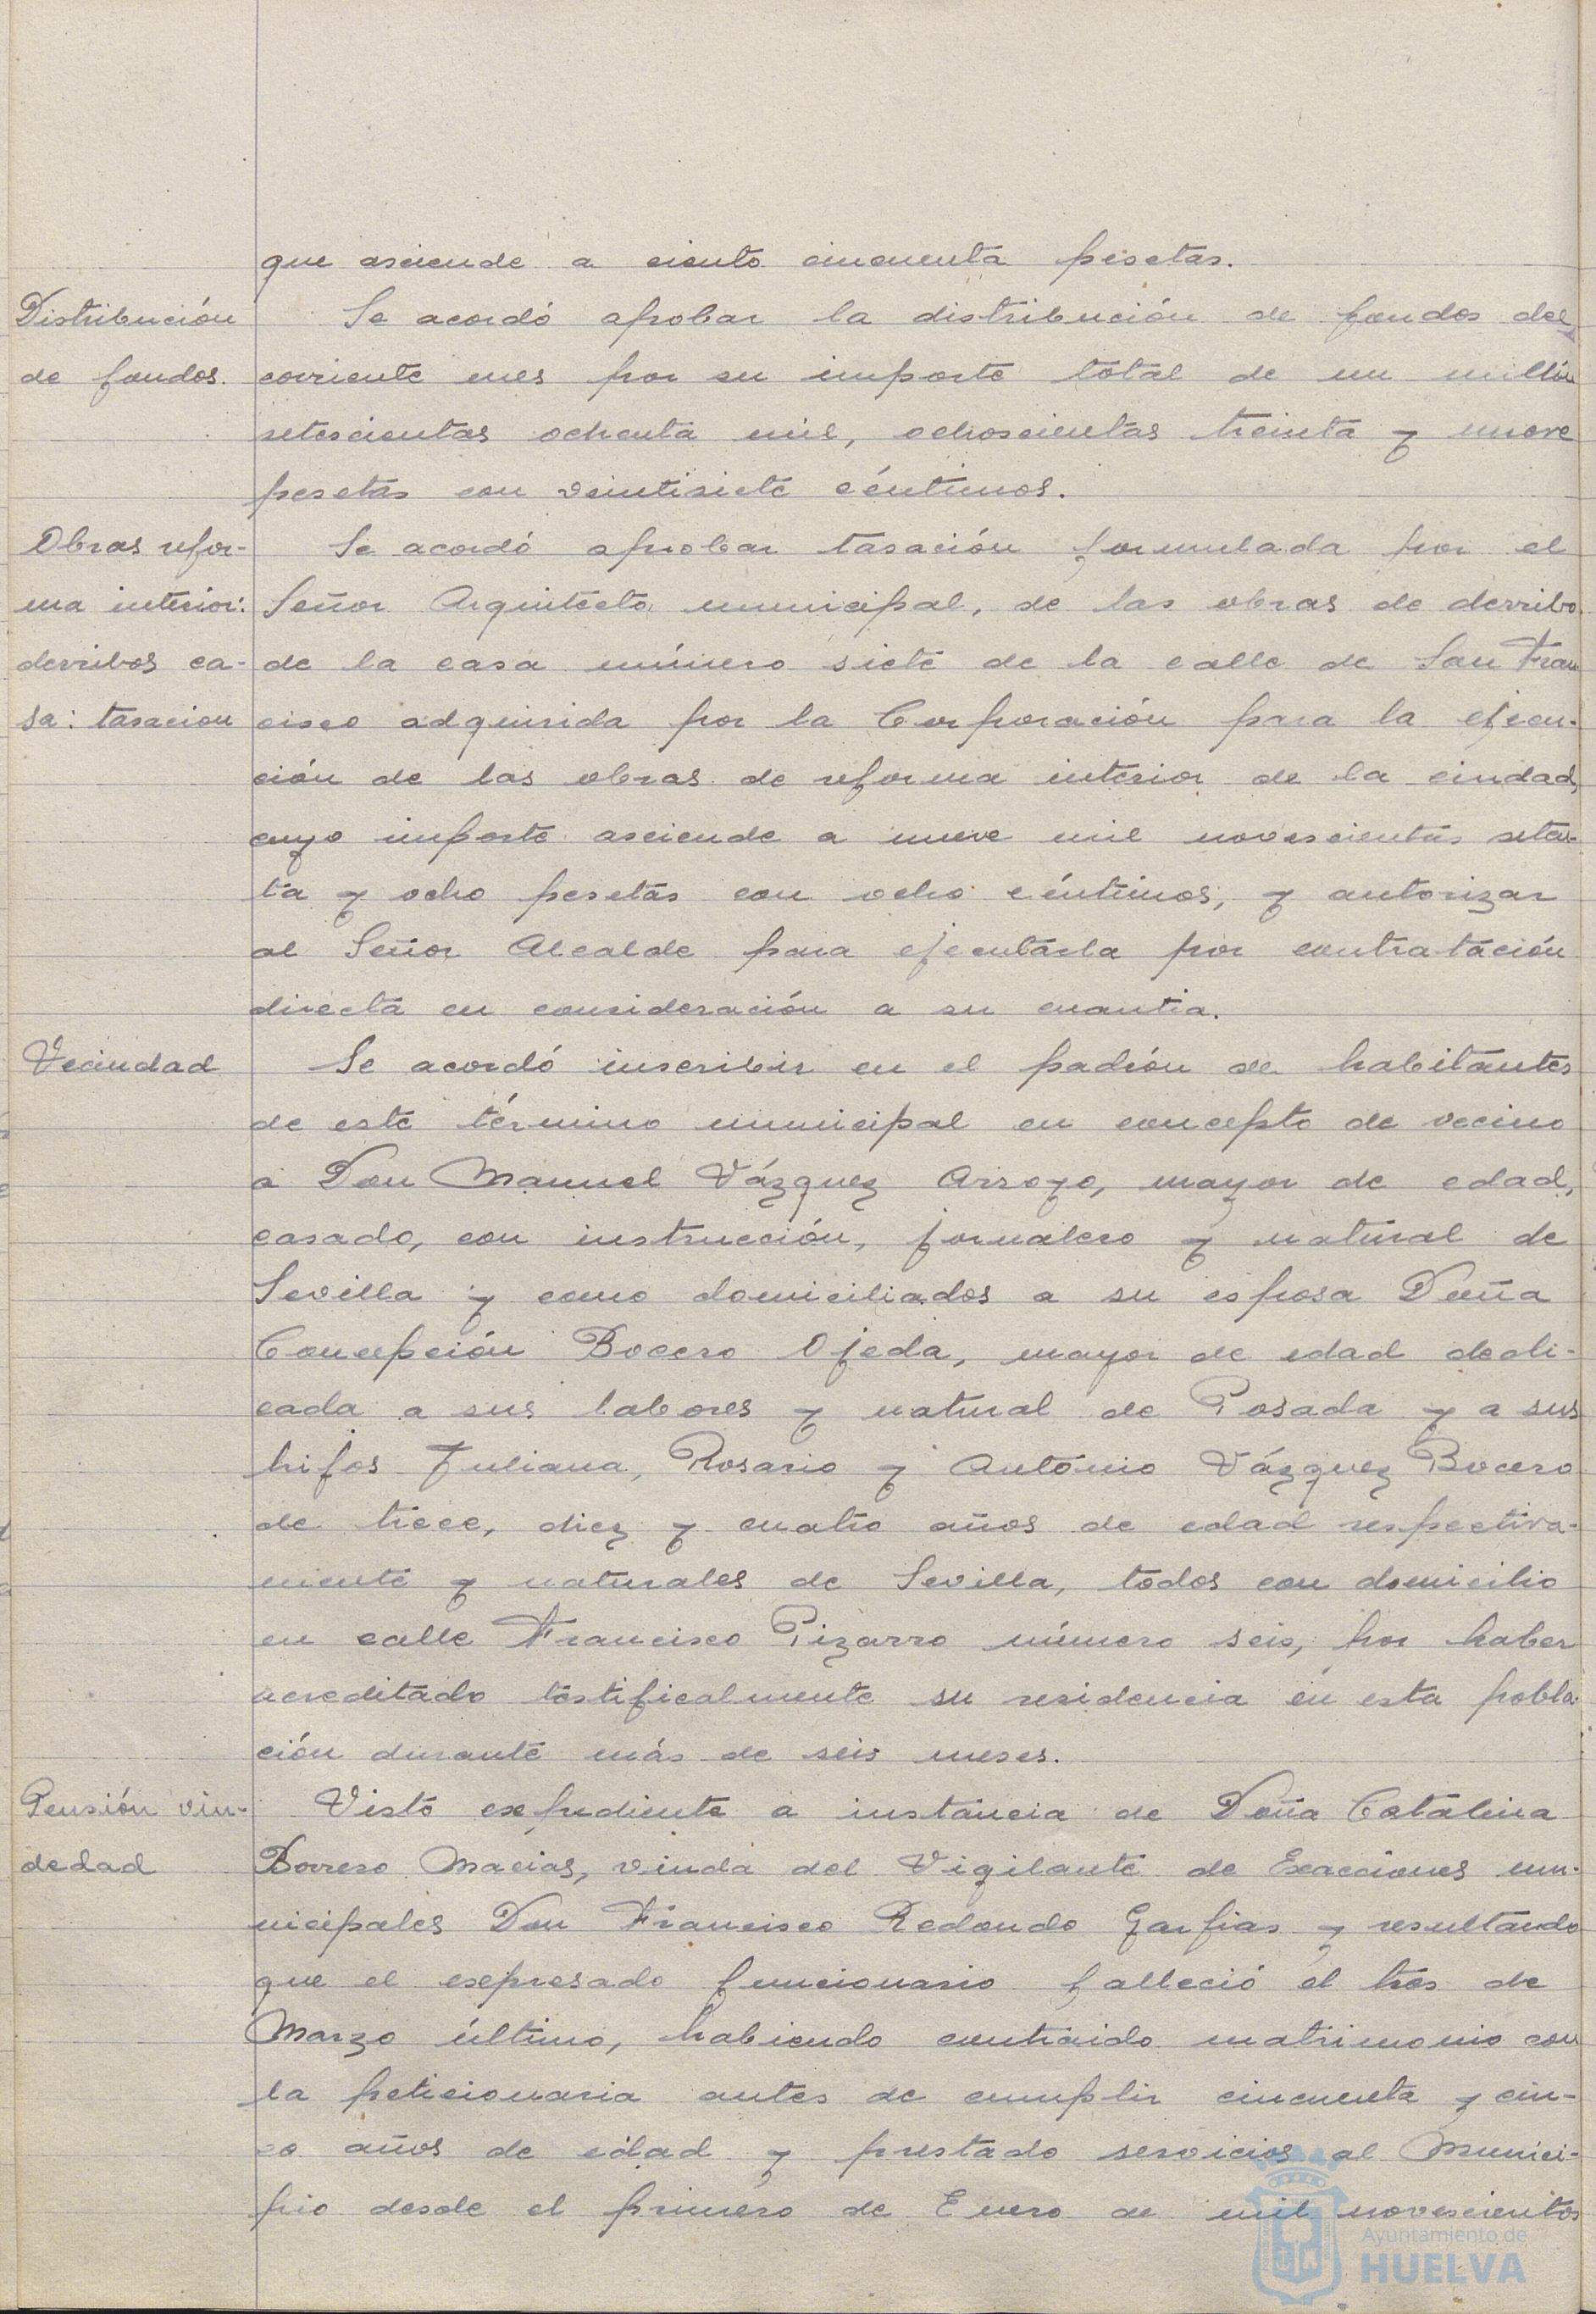 que asciende a ciento cincuenta pesetas.
Distribución
de fondos.
Se acordó aprobar la distribución de fondos del
corriente mes por su importe total de un millón
setescientas ochenta mil, ochoscientas treinta y nueve
pesetas con veintisiete céntimos.
Obras refor-
ma interior:
derribos ca-
sa: tasacion
Se acordó aprobar tasación formulada por el
Señor Arquitecto municipal, de las obras de derribo
de la casa número siete de la calle de San Fran
cisco adquirida por la Corporación para la ejecu-
ción de las obras de reforma interior de la ciudad,
cuyo importe asciende a nueve mil novescientas seten-
ta y ocho pesetas con ocho céntimos, y autorizar
al Señor Alcalde para ejecutarla por contratación
directa en consideración a su cuantia.
Vecindad
Se acordó inscribir en el padrón de habitantes
de este término municipal en concepto de vecino
a Don Manuel Vázquez Arroyo, mayor de edad,
casado, con instrucción, jornalero y natural de
Sevilla y como domiciliados a su esposa Doña
Concepción Bocero Ojeda, mayor de edad dedi-
cada a sus labores y natural de Posada y a sus
hijos Juliana, Rosario y Antonio Vázquez Bocero
de trece, diez y cuatro años de edad respectiva-
mente y naturales de Sevilla, todos con domicilio
en calle Francisco Pizarro número seis, por haber
acreditado testificalmente su residencia en esta pobla
ción durante más de seis meses.
Pensión viu-
dedad
Visto expediente a instancia de Doña Catalina
Borrero Macías, viuda del Vigilante de Exacciones mu-
nicipales Don Francisco Redondo Garfias y resultando
que el expresado funcionario falleció el tres de
Marzo último, habiendo contraido matrimonio con
la peticionaria antes de cumplir cincuenta y cin-
co años de edad y prestado servicios al Munici-
pio desde el primero de Enero de mil novescientos
Ayuntamiento de
HUELVA